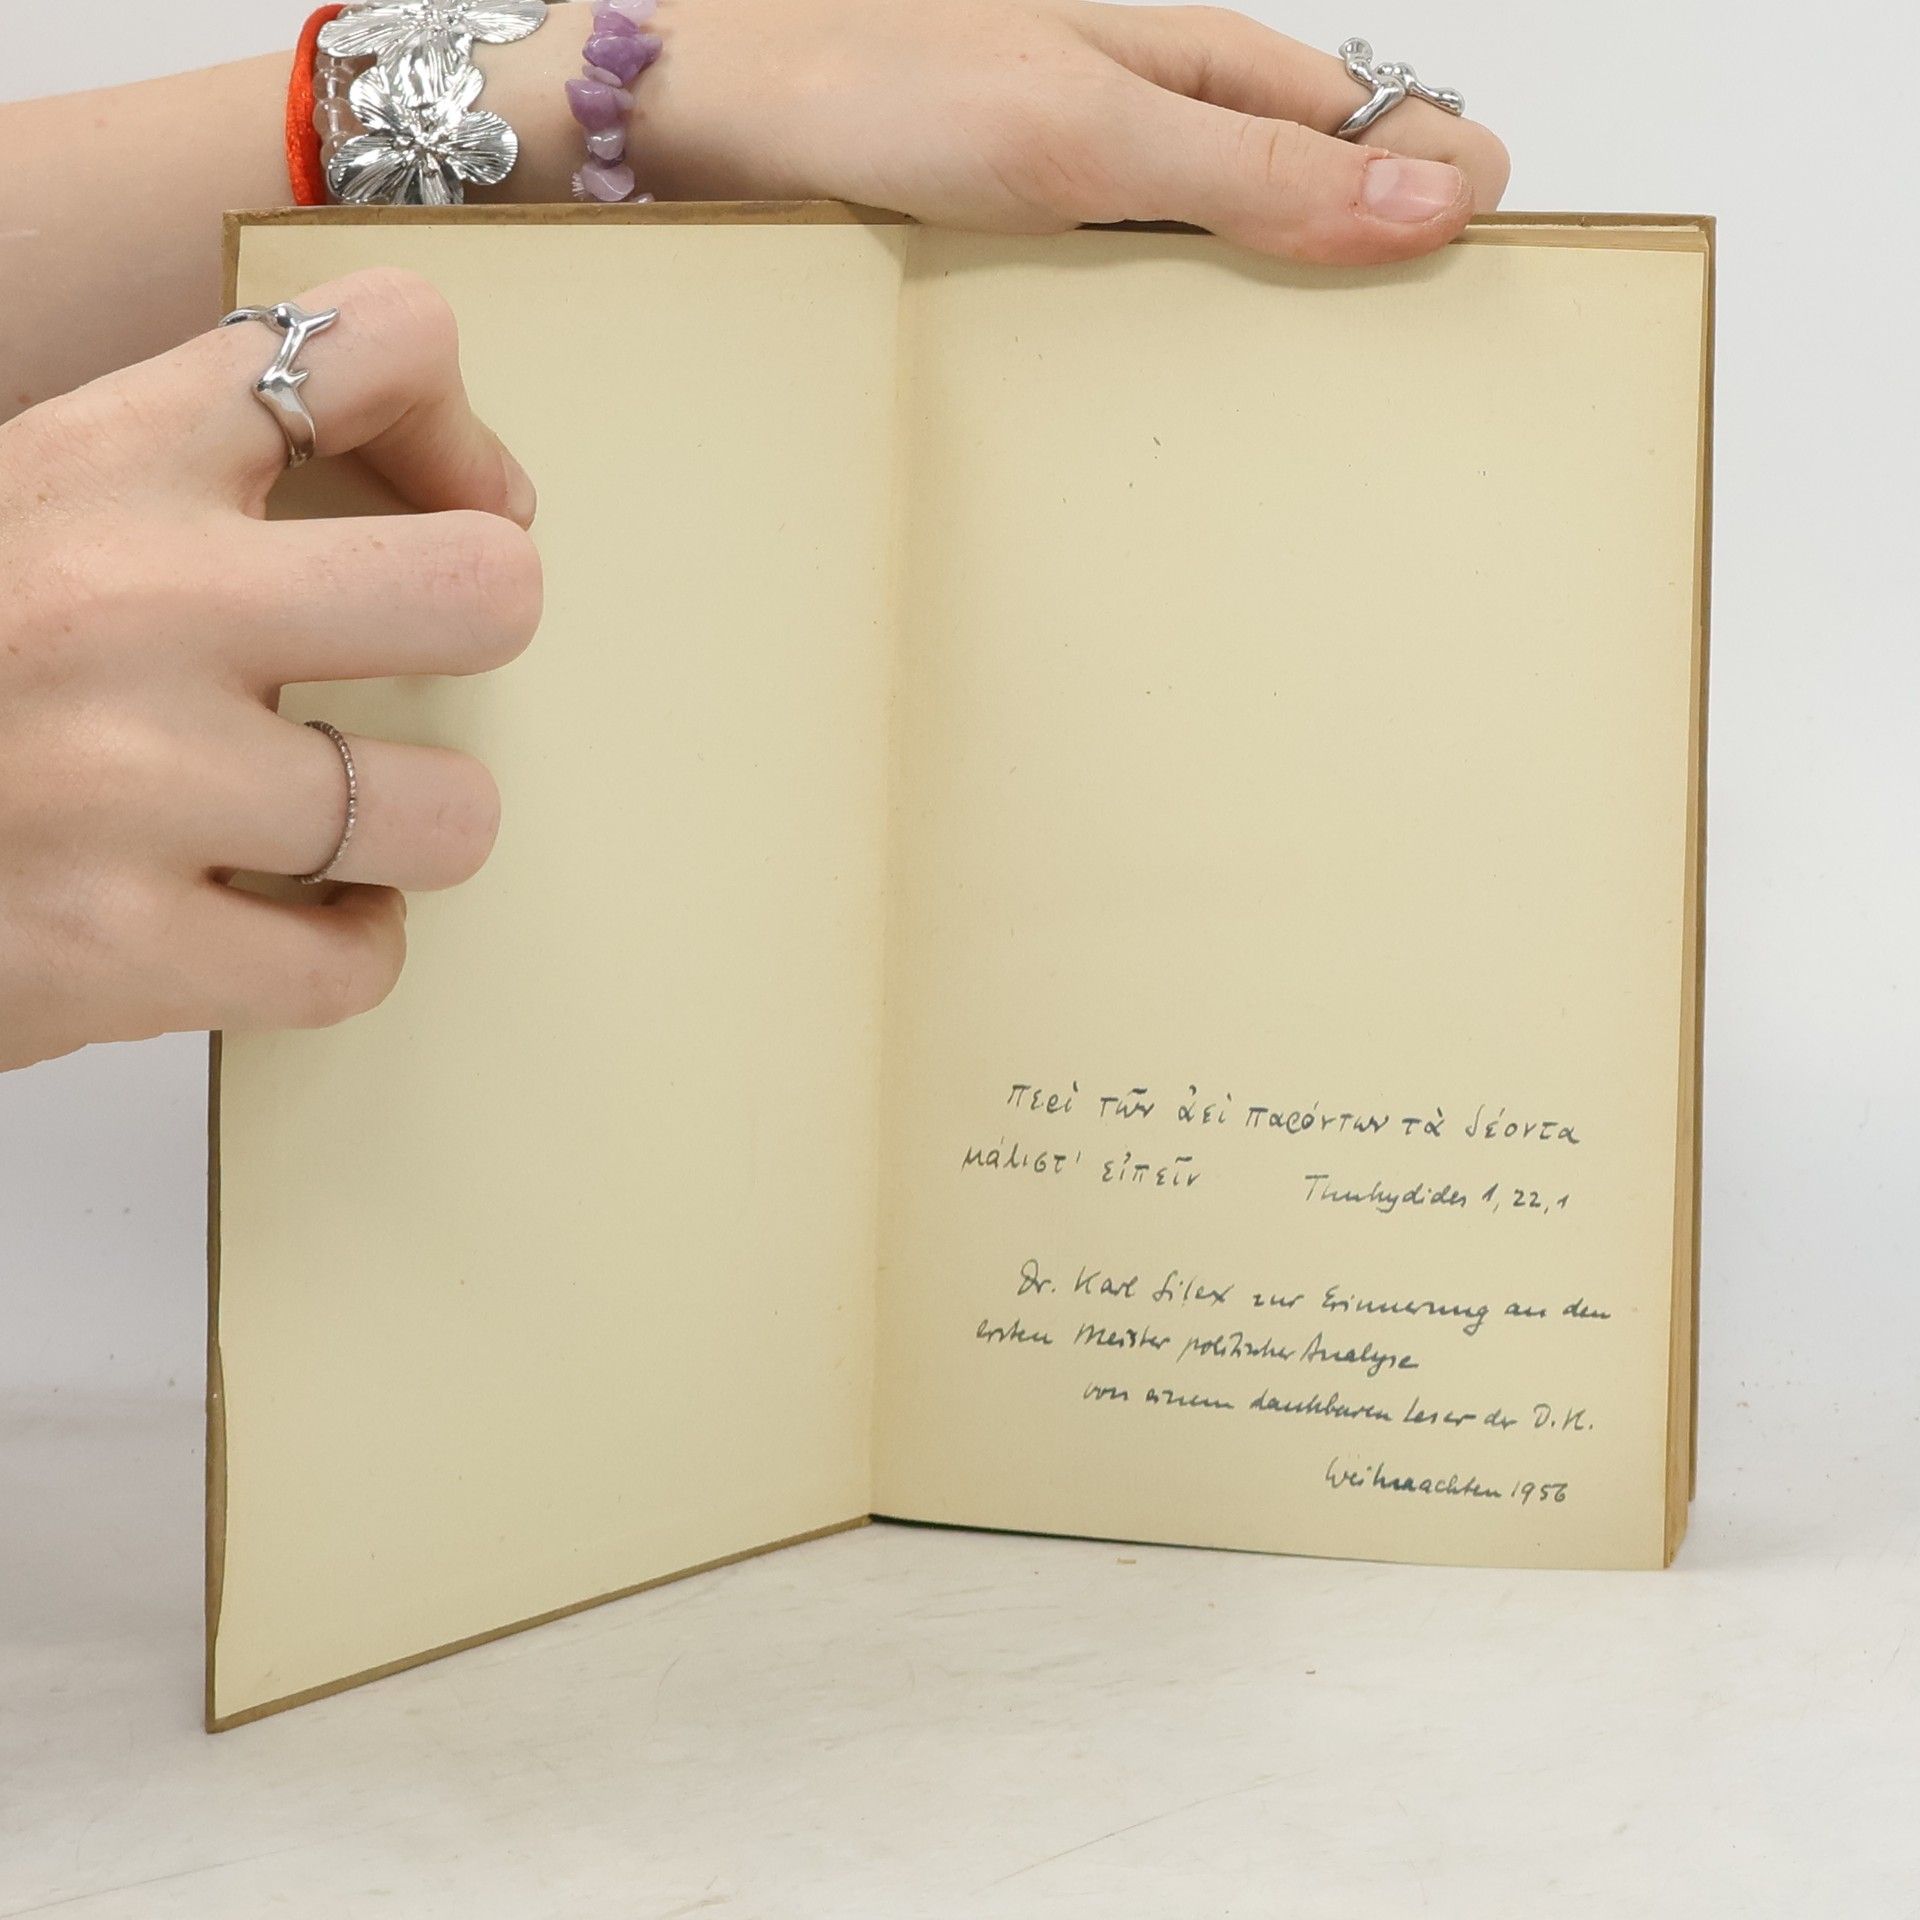 περὶ τῶν ἀεὶ παρόντων τὰ δέοντα
μάλιστ' εἰπεῖν Thukydides 1, 22, 1
Dr. Karl Silex zur Erinnerung an den
ersten Meister politischer Analyse
von einem dankbaren Leser der D.K.
Weihnachten 1956